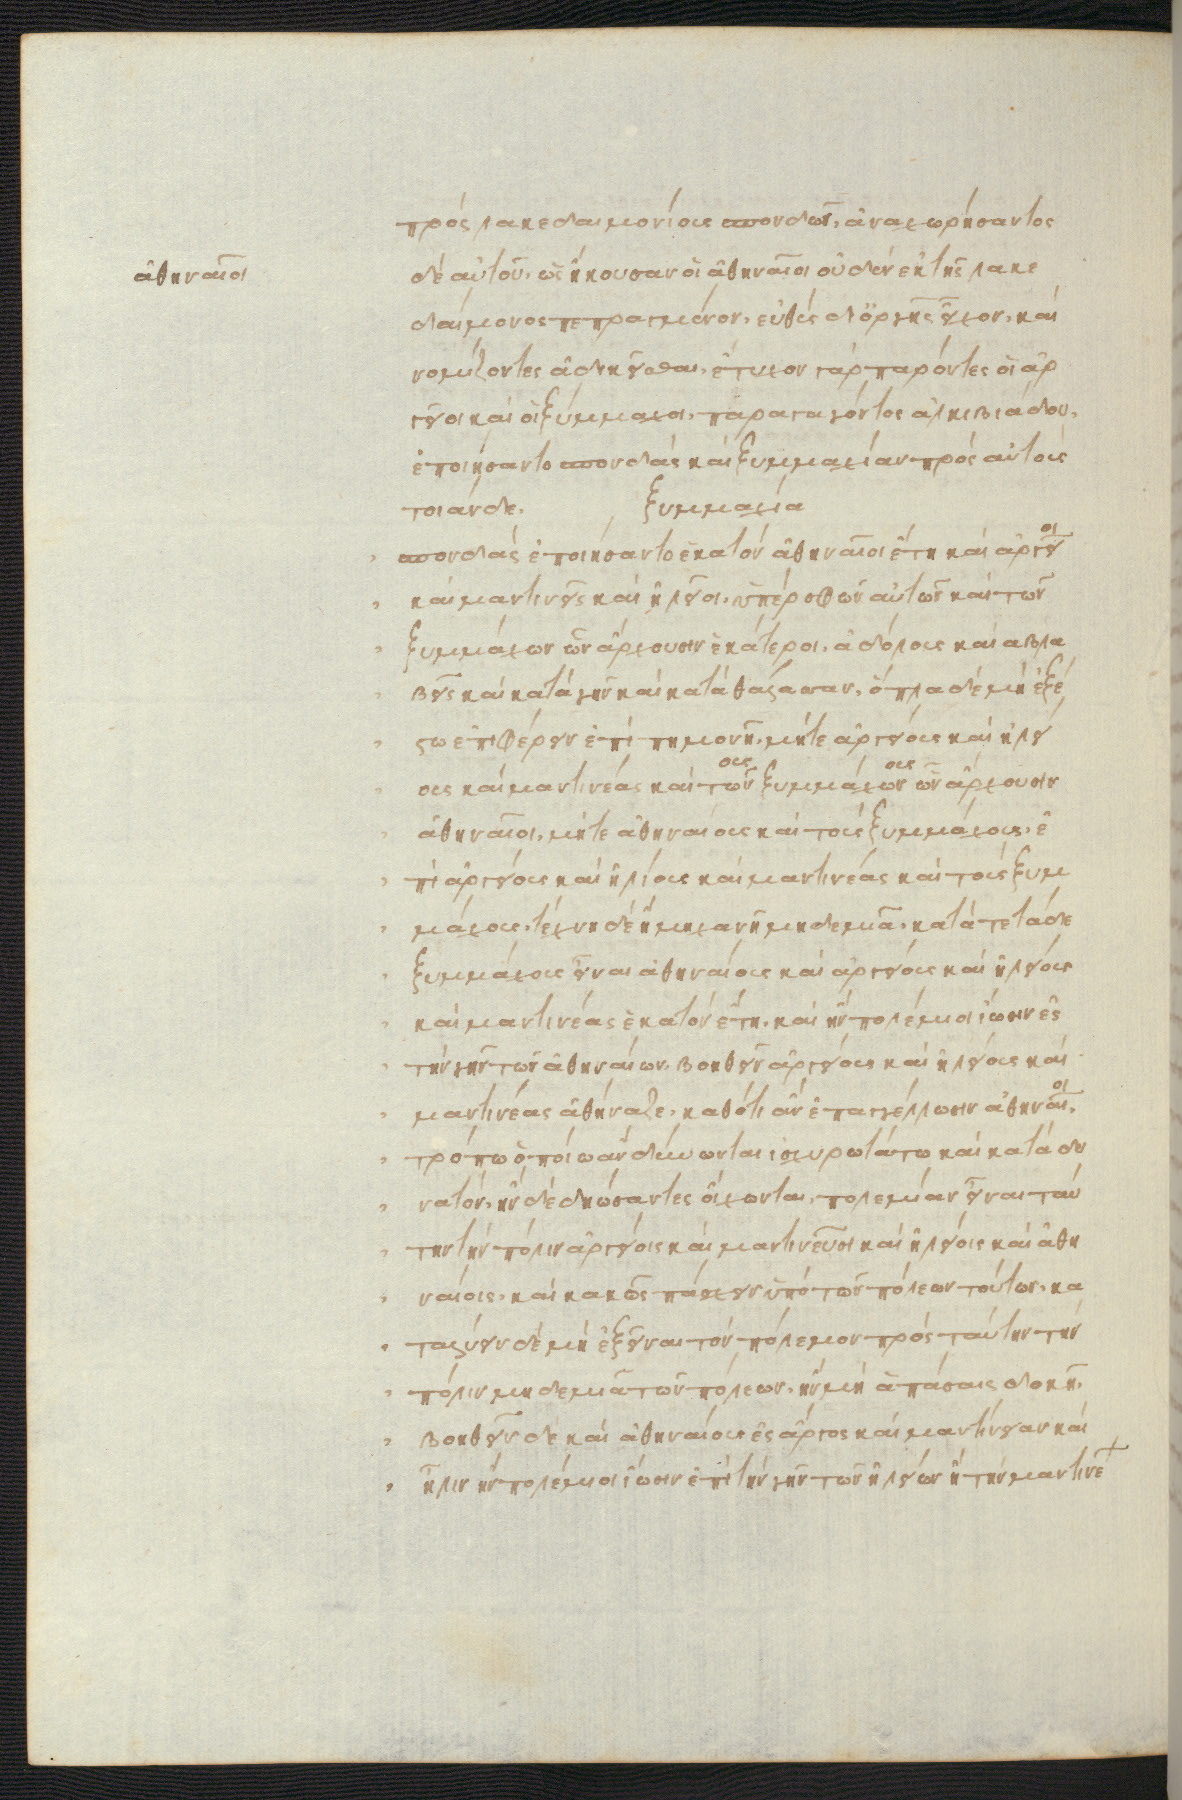 πρὸς λακεδαιμονίους σπονδῶν, ἀναχωρήσαντος
ἀθηναῖοι
δὲ αὐτοῦ, ὡς ἤκουσαν οἱ ἀθηναῖοι οὐδὲν ἐκ τῆς λακε
δαίμονος πεπραγμένον, εὐθὺς δι' ὀργῆς εἶχον, καὶ
νομίζοντες ἀδικεῖσθαι, ἔτυχον γὰρ παρόντες οἱ ἀρ
γεῖοι καὶ οἱ ξύμμαχοι, παραγαγόντος ἀλκιβιάδου,
ἐποιήσαντο σπονδὰς καὶ ξυμμαχίαν πρὸς αὐτοὺς
τοιάνδε. ξυμμαχία
σπονδὰς ἐποιήσαντο ἑκατὸν ἀθηναῖοι ἔτη καὶ ἀργεῖοι
καὶ μαντινεῖς καὶ ἠλεῖοι, ὑπὲρ σφῶν αὐτῶν καὶ τῶν
ξυμμάχων ὧν ἄρχουσιν ἑκάτεροι, ἀδόλους καὶ αβλα
βεῖς καὶ κατὰ γῆν καὶ κατὰ θάλασσαν, ὅπλα δὲ μὴ ἐξέ
στω ἐπιφέρειν ἐπὶ πημονῇ, μήτε ἀργείους καὶ ἠλεί
ους καὶ μαντινέας καὶ τῶν ους ξυμμάχων ους ὧν ἄρχουσιν
ἀθηναῖοι, μήτε ἀθηναίους καὶ τοὺς ξυμμάχους, ἐ
πὶ ἀργείους καὶ ἠλίους καὶ μαντινέας καὶ τοὺς ξυμ
μάχους, τέχνη δὲ ἢ μηχανῆ μηδεμιᾶ, κατὰ τε τάδε
ξυμμάχους εἶναι ἀθηναίους καὶ ἀργείους καὶ ἠλείους
καὶ μαντινέας ἑκατὸν ἔτη, καὶ ἢν πολέμιοι ἴωσιν ἐς
τὴν γῆν τῶν ἀθηναίων, βοηθεῖν ἀργείους καὶ ἠλείους καὶ
μαντινέας ἀθήναζε, καθότι ἂν ἐπαγγέλλωσιν ἀθηναῖοι,
τρόπω ὁποίω ἂν δύνωνται ἰσχυρωτάτω καὶ κατὰ δυ
νατόν, ἢν δὲ δηώσαντες οἴχωνται, πολεμίαν εἶναι ταύ
την τὴν πόλιν ἀργείοις καὶ μαντινεῦσι καὶ ἠλείοις καὶ ἀθη
ναίοις, καὶ κακῶς πάσχειν ὑπὸ τῶν πόλεων τούτων, κα
ταλύειν δὲ μὴ ἐξεῖναι τὸν πόλεμον πρὸς ταύτην τὴν
πόλιν μηδεμιᾶ τῶν πόλεων, ἢν μὴ ἁπάσαις δοκῆ,
βοηθεῖν δε καὶ ἀθηναίους ἐς ἄργος καὶ μαντίνειαν καὶ
ἦλιν ἢν πολέμιοι ἴωσιν ἐπὶ τὴν γῆν τῶν ἠλείων ἢ τὴν μαντινέ